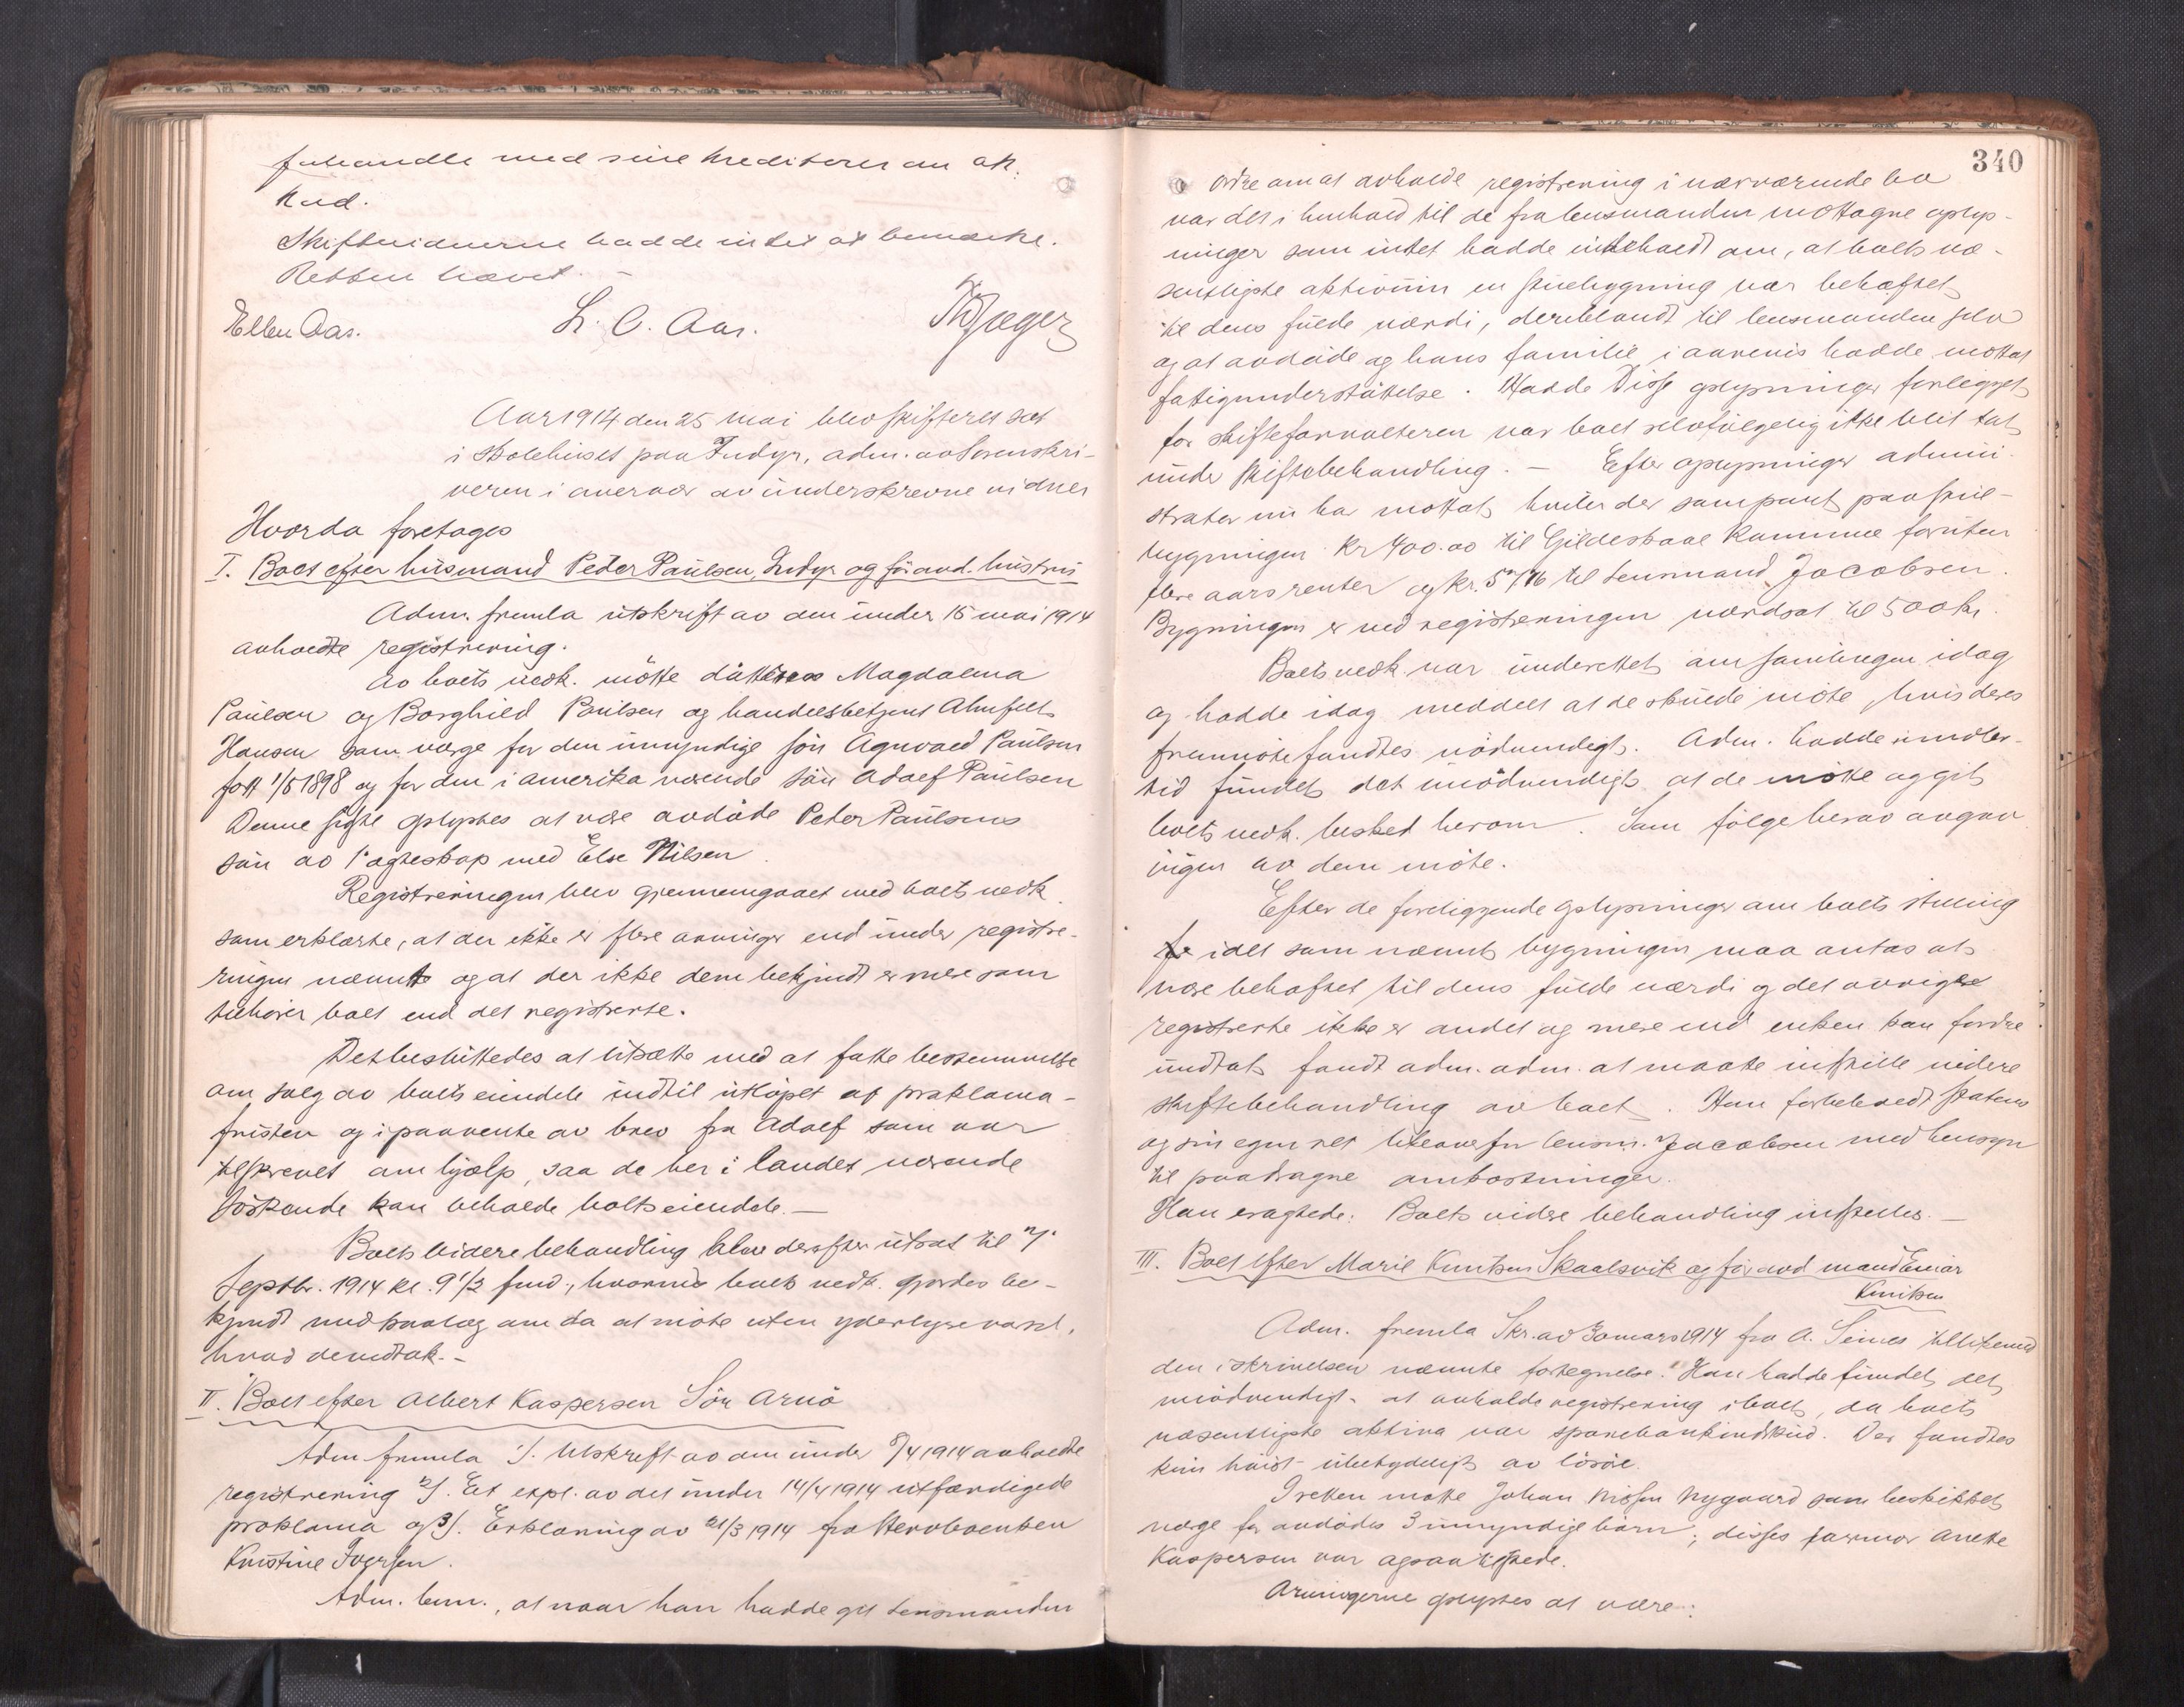 forhandle med sine kreditorer om ak-
kord.
Skiftevidnerne hadde intet at bemærke.
Retten hævet. –
Ellen Aas. L. C. Aas.
Aar 1914 den 25 mai blev skifteret sat
i Skolehuset paa Indyr, adm. av Sorenskri-
veren i overvær av underskrevne vidner
Hvorda foretoges
I. Boet efter husmand Peder Paulsen, Indyr og før avd. hustru
Adm. fremla utskrift av den under 15 mai 1914
avholdte registrering.
Av boets vedk. møtte døttrene Magdalena
Paulsen og Borghild Paulsen og handelsbetjent Almfelt
Hansen som verge for den umyndige søn Agnvald Paulsen
født 1/5 1898 og for den i Amerika værende søn Adolf Paulsen
Denne siste oplystes at være avdøde Peter Paulsens
søn av 1ste ægteskap med Else Nilsen.
Registreringen blev gjennemgaaet med boets vedk.
som erklærte, at der ikke er flere arvinger end under registre-
ringen nævnte og at der ikke dem bekjendt er mere som
tilhører boet end det registrerte.
Det besluttedes at utsætte med at fatte bestemmelse
om salg av boets eiendele indtil utløpet af proklama-
fristen og i paavente av brev fra Adolf som var
tilskrevet om hjælp, saa de her i landet værende
søskende kan beholde boets eiendele. –
Boets videre behandling blev derefter utsat til 7.
Septbr. 1914 kl. 9 1/2 fmd., hvormed boets vedk. gjordes be-
kjendt med paalæg om da at møte uten yderligere varsel,
hvad de vedtok. –
II. Boet efter Albert Kaspersen Sør Arnø
Adm fremla 1/. Utskrift av den under 8/4 1914 avholdte
registrering 2/. Et expl. av det under 14/4 1914 utfærdigede
proklama og 3/. Erklæring av 21/3 1914 fra Sterboenken
Kristine Iversen.
Adm. bem., at naar han hadde git lensmanden
340
ordre om at avholde registrering i nærværende bo
var det i henhold til de fra lensmanden mottagne oplys-
ninger som intet hadde indeholdt om, at boets væ-
sentligste aktivum en stuebygning var behæftet
til dens fulde værdi, deriblandt til lensmanden selv
og at avdøde og hans familie i aarevis hadde mottat
fatigunderstøttelse. Hadde disse oplysninger foreligget
for skifteforvalteren var boet selvfølgelig ikke blit tat
under skiftebehandling. – Efter oplysninger admini-
strator nu har mottat, hviler der som pant paa stue-
bygningen kr 400.00 til Gildeskaal kommune foruten
flere aars renter og kr. 57.76 til lensmand Jacobsen.
Bygningen er ved registreringen værdsat til 500 kr.
Boets vedk. var underrettet om samlingen idag
og hadde idag meddelt at de skulde møte, hvis deres
fremmøte fandtes nødvendigt. Adm. hadde imidler-
tid fundet det unødvendigt at de møtte og git
boets vedk. besked herom. Som følge herav avgav
ingen av dem møte.
Efter de foreliggende oplysninger om boets stilling
idet som nævnt bygningen maa antas at
være behæftet til dens fulde værdi og det øvrige
registrerte ikke er andet og mere end enken kan fordre
undtat, fandt adm. adm. at maatte indstille videre
skiftebehandling av boet. Han forbeholdt statens
og sin egen ret likeoverfor lensm. Jacobsen med hensyn
til paadragne omkostninger.
Han eragtede: Boets videre behandling indstilles. –
III. Boet efter Marie Knutsen Skaalsvik og før avd mand Einar
Knutsen
Adm. fremla Skr. av 30 mars 1914 fra A. Seines tillikemed
den i skrivelsen nævnte fortegnelse. Han hadde fundet det
unødvendigt at avholde registrering i boet, da boets
væsentligste aktiva var sparebankindskud. Der fandtes
kun høist ubetydeligt av løsøre.
I retten møtte Johan Nilsen Nygaard som beskikket
verge for avdødes 3 umyndige børn; disses farmor Anette
Kaspersen var ogsaa tilstede.
Arvingerne oplystes at være: